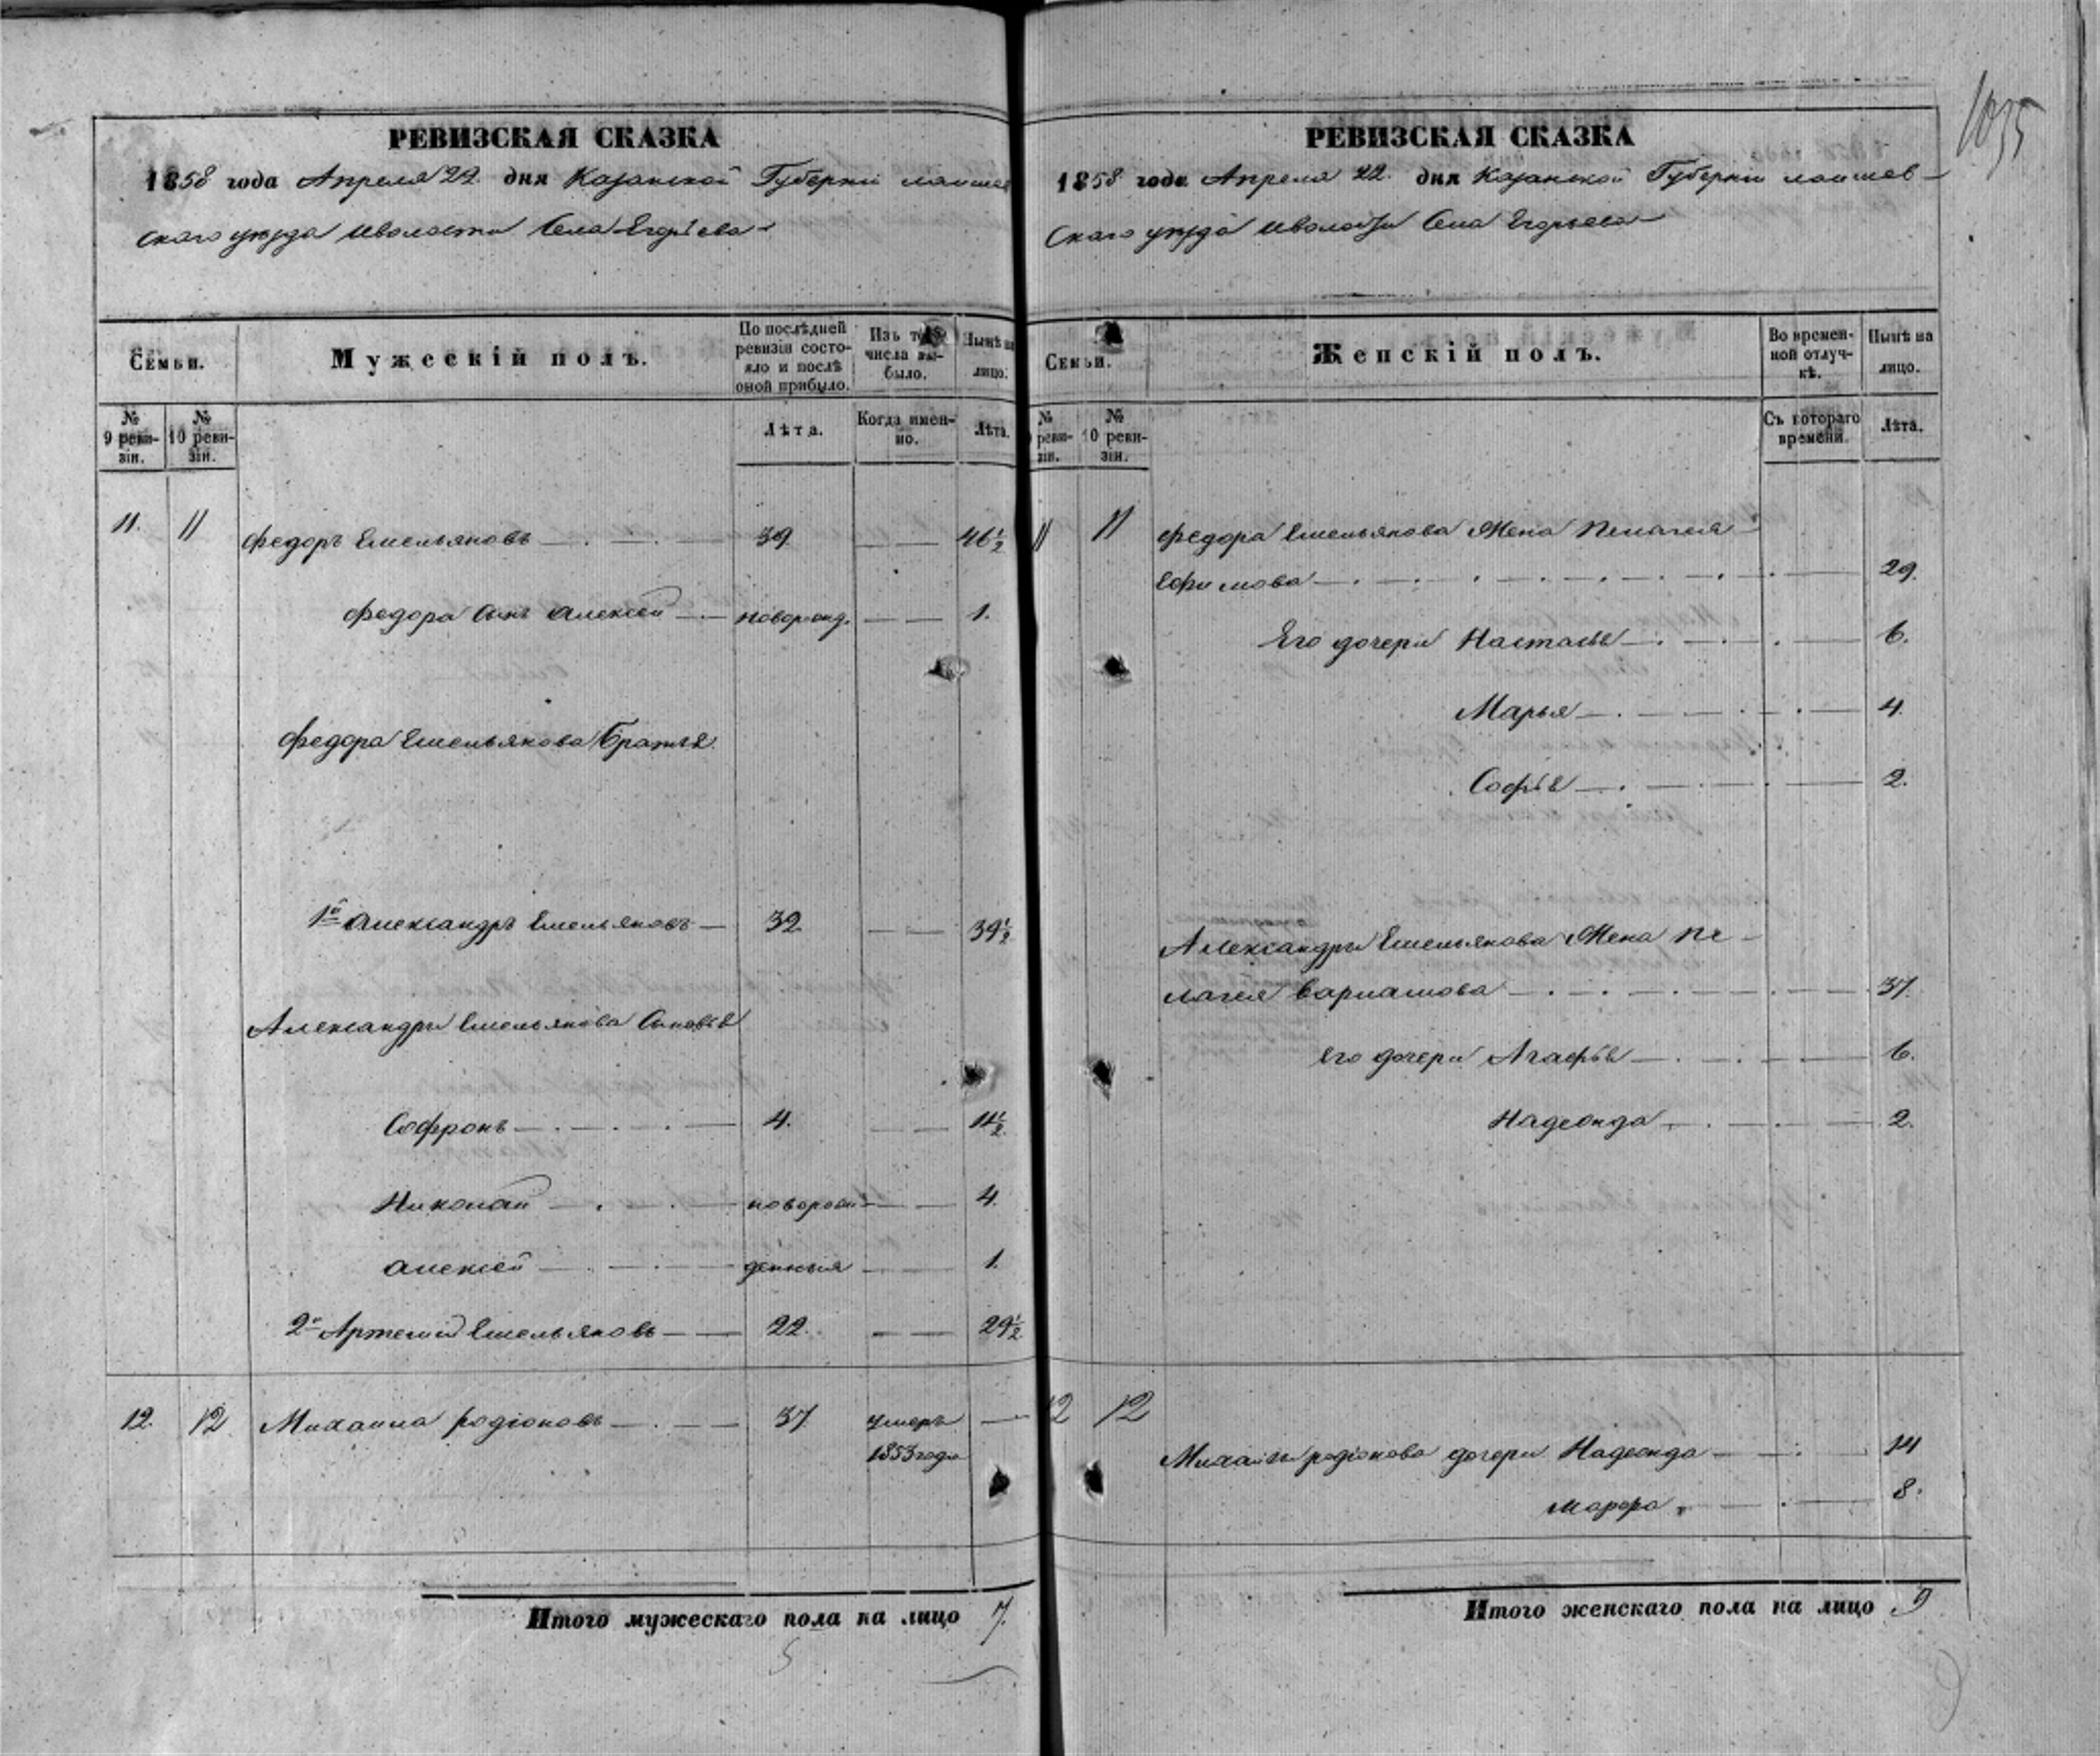 1035
РЕВИЗСКАЯ СКАЗКА
1858 года Апреля 22 дня Казанской Губерніи Лаишев
скаго уезда и волости Села Егорьева
Семьи.
Мужескій полъ.
По послѣдней ревизіи состояло и послѣ оной прибыло.
Изъ того числа выбыло.
Нынѣ на лицо.
№ 9 ревизіи.
№ 10 ревизіи.
Лѣта.
Когда именно.
Лѣта.
11. 11 Федоръ Емельяновъ 39 46 1/2
Федора сынъ Алексей новорожд. 1.
Федора Емельянова Братья
1й Александръ Емельяновъ 32 39 1/2
Александры Емельянова Сыновья
Софронъ 4. 11 1/2
Николай новорож 4.
Алексей денныя 1.
2й Артемий Емельяновъ 22. 29 1/2
12. 12 Михаила Родіоновъ 37 умеръ
1853 года
Итого мужескаго пола на лицо 7.
РЕВИЗСКАЯ СКАЗКА
1858 года Апреля 22. дня Казанской Губерніи Лаишев-
скаго уезда и волости Села Егорьева
Семьи.
Женскій полъ.
Во временной отлучкѣ.
Нынѣ на лицо.
№ ревизіи.
№ 10 ревизіи.
Съ котораго времени.
Лѣта.
11 11 Федора Емельянова Жена Пелагея
Ефимова 29.
Его дочери Настасья 6.
Марья 4.
Софья 2.
Александры Емельянова Жена Пе-
лагея Варламова 37.
Его дочери Агафья 6.
Надежда 2.
12 12
Михаилы Родіонова дочери Надежда 14
Марфа 8.
Итого женскаго пола на лицо 9